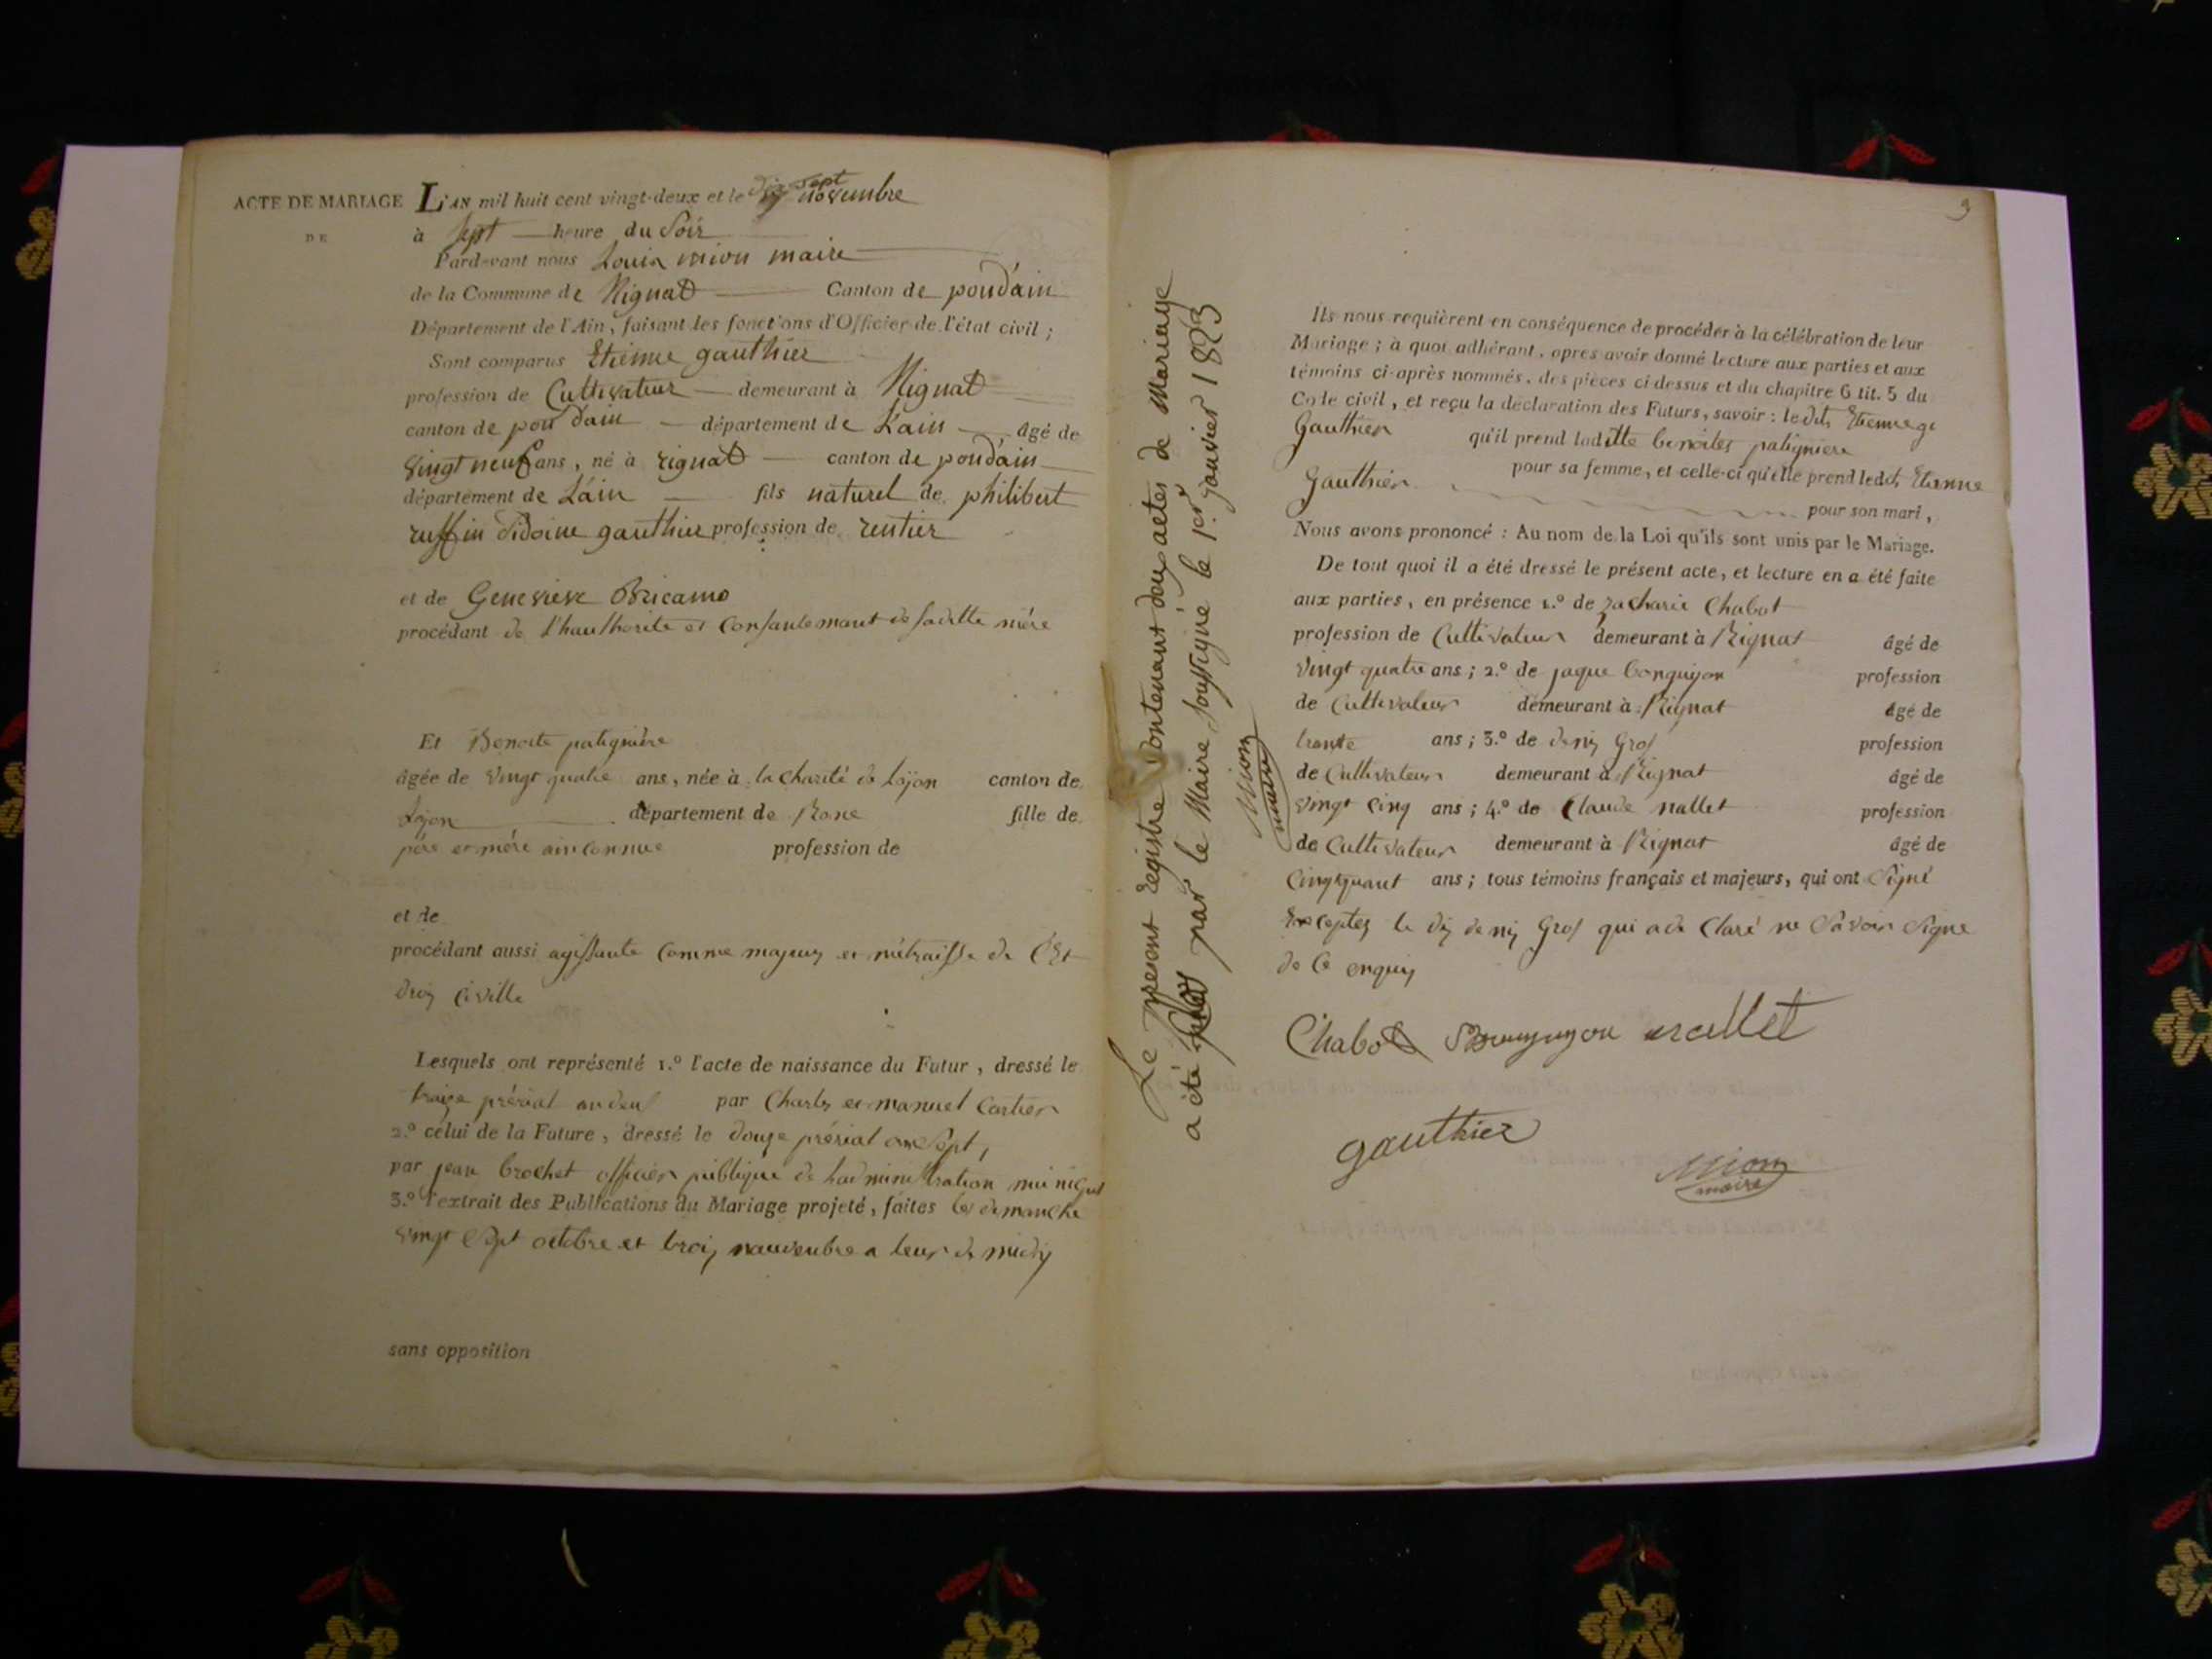 ACTE DE MARIAGE
DE
L'AN mil huit cent vingt-deux et le dix sept novembre
à sept heure du Soir
Pardevant nous Louis mion maire
de la Commune de Rignat Canton de poud'ain
Département de l'Ain, faisant les fonctions d'Officier de l'état civil ;
Sont comparus Etienne gauthier
profession de Cultivateur demeurant à Rignat
canton de pon d'ain département de L'ain âgé de
vingt neuf ans, né à rignat canton de poud'ain
département de L'ain fils naturel de philibert
ruffin didoine gauthier profession de rentier
et de Genevieve Bricamo
procédant de l'hauthorite et Consantemant de saditte mére
Et Benoite patigniére
âgée de vingt quatre ans, née à la charité de Lÿon canton de
Lÿon département de Rone fille de
pére et mére ainconnue profession de
et de
procédant aussi agissante Comme majeur et métraisse de Cest
drois Civille
Lesquels ont représenté 1.º l'acte de naissance du Futur, dressé le
traize prérial an deux par Charles emanuel Cartier
2.º celui de la Future, dressé le douze prérial an Sept,
par jean brochet officier publique de l'adminustration municipal
3.º l'extrait des Publications du Mariage projeté, faites les dimanche
vingt Sept octobre et trois nauvenbre a leur de midy
sans opposition
Le present registre Contenant deux actes de Mariage
a été par le Maire soussigné le 1er janvier 1823
Mion
maire
9
Ils nous requièrent en conséquence de procéder à la célébration de leur
Mariage ; à quoi adhérant, apres avoir donné lecture aux parties et aux
témoins ci-après nommés, des pièces ci dessus et du chapitre 6 tit. 5 du
Code civil, et reçu la déclaration des Futurs, savoir : le dit Etienne ge
Gauthier qu'il prend laditte benoites patigniere
pour sa femme, et celle-ci qu'elle prend ledit Etienne
Gauthier pour son mari,
Nous avons prononcé : Au nom de la Loi qu'ils sont unis par le Mariage.
De tout quoi il a été dressé le présent acte, et lecture en a été faite
aux parties, en présence 1.º de zacharie Chabot
profession de Cultivateur demeurant à Rignat âgé de
vingt quatre ans ; 2.º de jaque bonguyon profession
de Cultivateur demeurant à Rignat âgé de
trante ans ; 3.º de denis Gros profession
de Cultivateur demeurant à Rignat âgé de
vingt cinq ans ; 4.º de Claude nallet profession
de Cultivateur demeurant à Rignat âgé de
Cinquant ans ; tous témoins français et majeurs, qui ont Signé
Exceptez le dis denis Gros qui a de Claré ne Savoir Signe
de Ce enquis
Chabot nallet
gauthier
Mion
maire